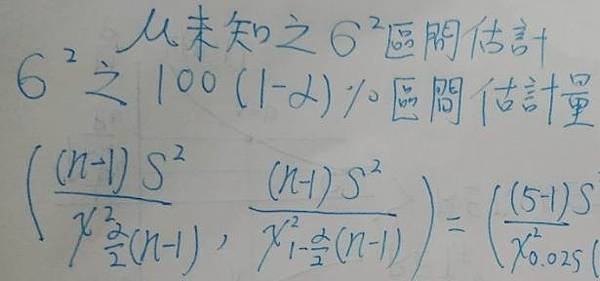 μ未知之σ²區間估計
σ²之100(1-α)%區間估計量
( (n-1)S² / χ²_{α/2}(n-1) , (n-1)S² / χ²_{1-α/2}(n-1) ) = ( (5-1)S / χ²_{0.025}(